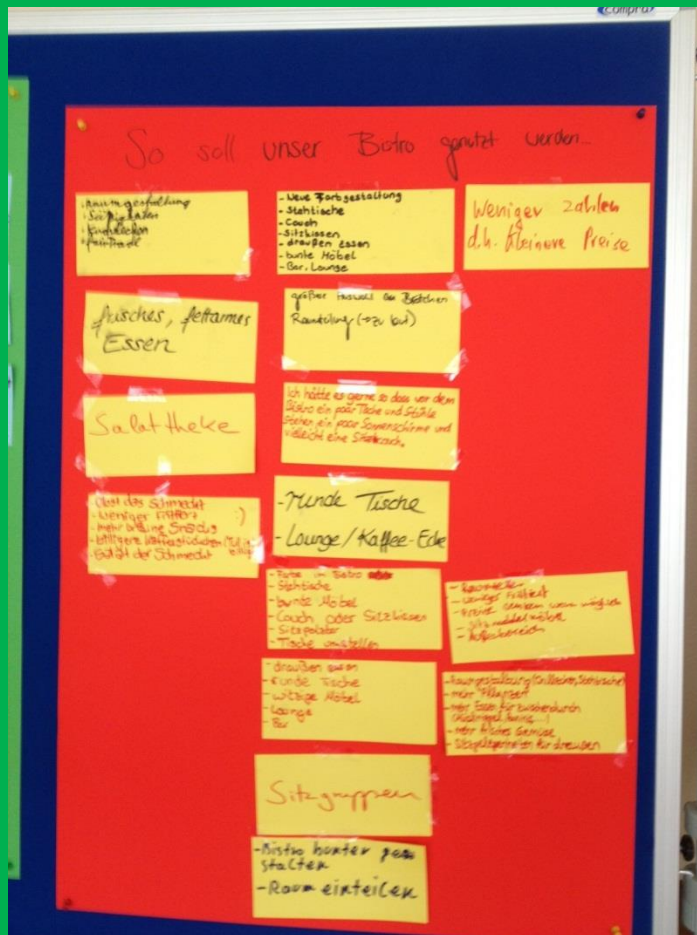 compra
So soll unser Bistro genutzt werden...
- Raumgestaltung
- Kuschelecken
- fairtrade
frisches, fettarmes
Essen
Salattheke
Obst das schmeckt
- weniger Frittiert :)
- mehr
- billigere
Salat der Schmeckt
- Neue Farbgestaltung
- Stehtische
- Couch
- Sitzkissen
- draußen essen
- bunte Möbel
- Bar, Lounge
größer Auswahl an Brötchen
Raumteilung (→ zu laut)
Ich hätte es gerne so dass vor dem
Bistro ein paar Tische und Stühle
stehen, ein paar Sonnenschirme und
vielleicht eine Sitzcouch.
- runde Tische
- Lounge/Kaffee-Ecke
- Farbe im Bistro
- Stehtische
- bunte Möbel
- Couch oder Sitzkissen
- Sitzpolster
- Tische umstellen
- draußen essen
- runde Tische
- witzige Möbel
- Lounge
- Bar
Sitzgruppen
- Bistro bunter ge
stalten
- Raum einteilen
Weniger zahlen
d.h. kleinere Preise
- Raumteiler
- weniger Frittiert
- Preise senken wenn möglich
- Raumgestaltung (Chillecken, Stehtische)
- mehr Pflanzen
- mehr Essen für zwischendurch
- mehr frisches Gemüse
- Sitzgelegenheiten für draußen